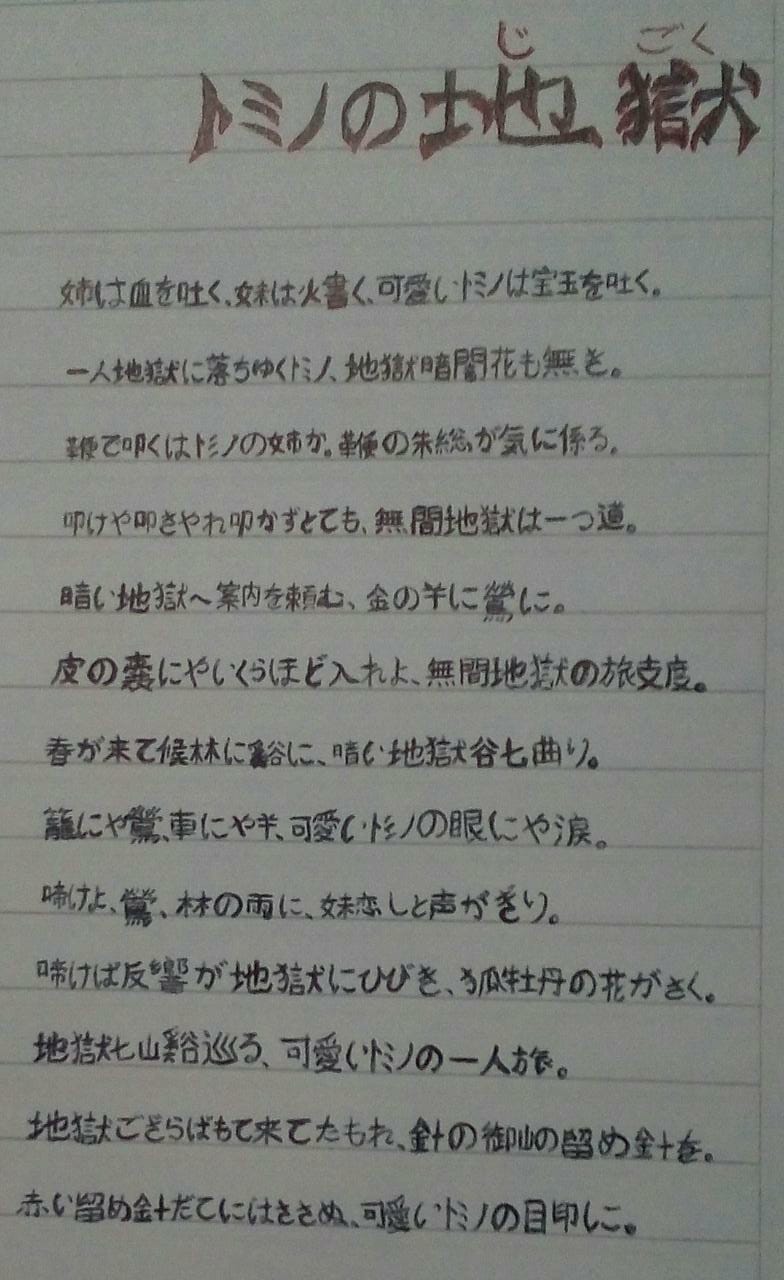 じ ごく
トミノの地獄
姉は血を吐く、妹は火書く、可愛いトミノは宝玉を吐く。
一人地獄に落ちゆくトミノ、地獄暗闇花も無き。
鞭で叩くはトミノの姉か。鞭の朱総が気に係る。
叩けや叩きやれ叩かずとても、無間地獄は一つ道。
暗い地獄へ案内を頼む、金の羊に鶯に。
皮の嚢にやいくらほど入れよ、無間地獄の旅支度。
春が来て候林に谿に、暗い地獄谷七曲り。
籠にや鶯、車にや羊、可愛いトミノの眼にや涙。
啼けよ、鶯、林の雨に、妹恋しと声がぎり。
啼けば反響が地獄にひびき、狐牡丹の花がさく。
地獄七山谿巡る、可愛いトミノの一人旅。
地獄ござらばもて来てたもれ、針の御山の留め針を。
赤い留め針だてにはささぬ、可愛いトミノの目印しに。